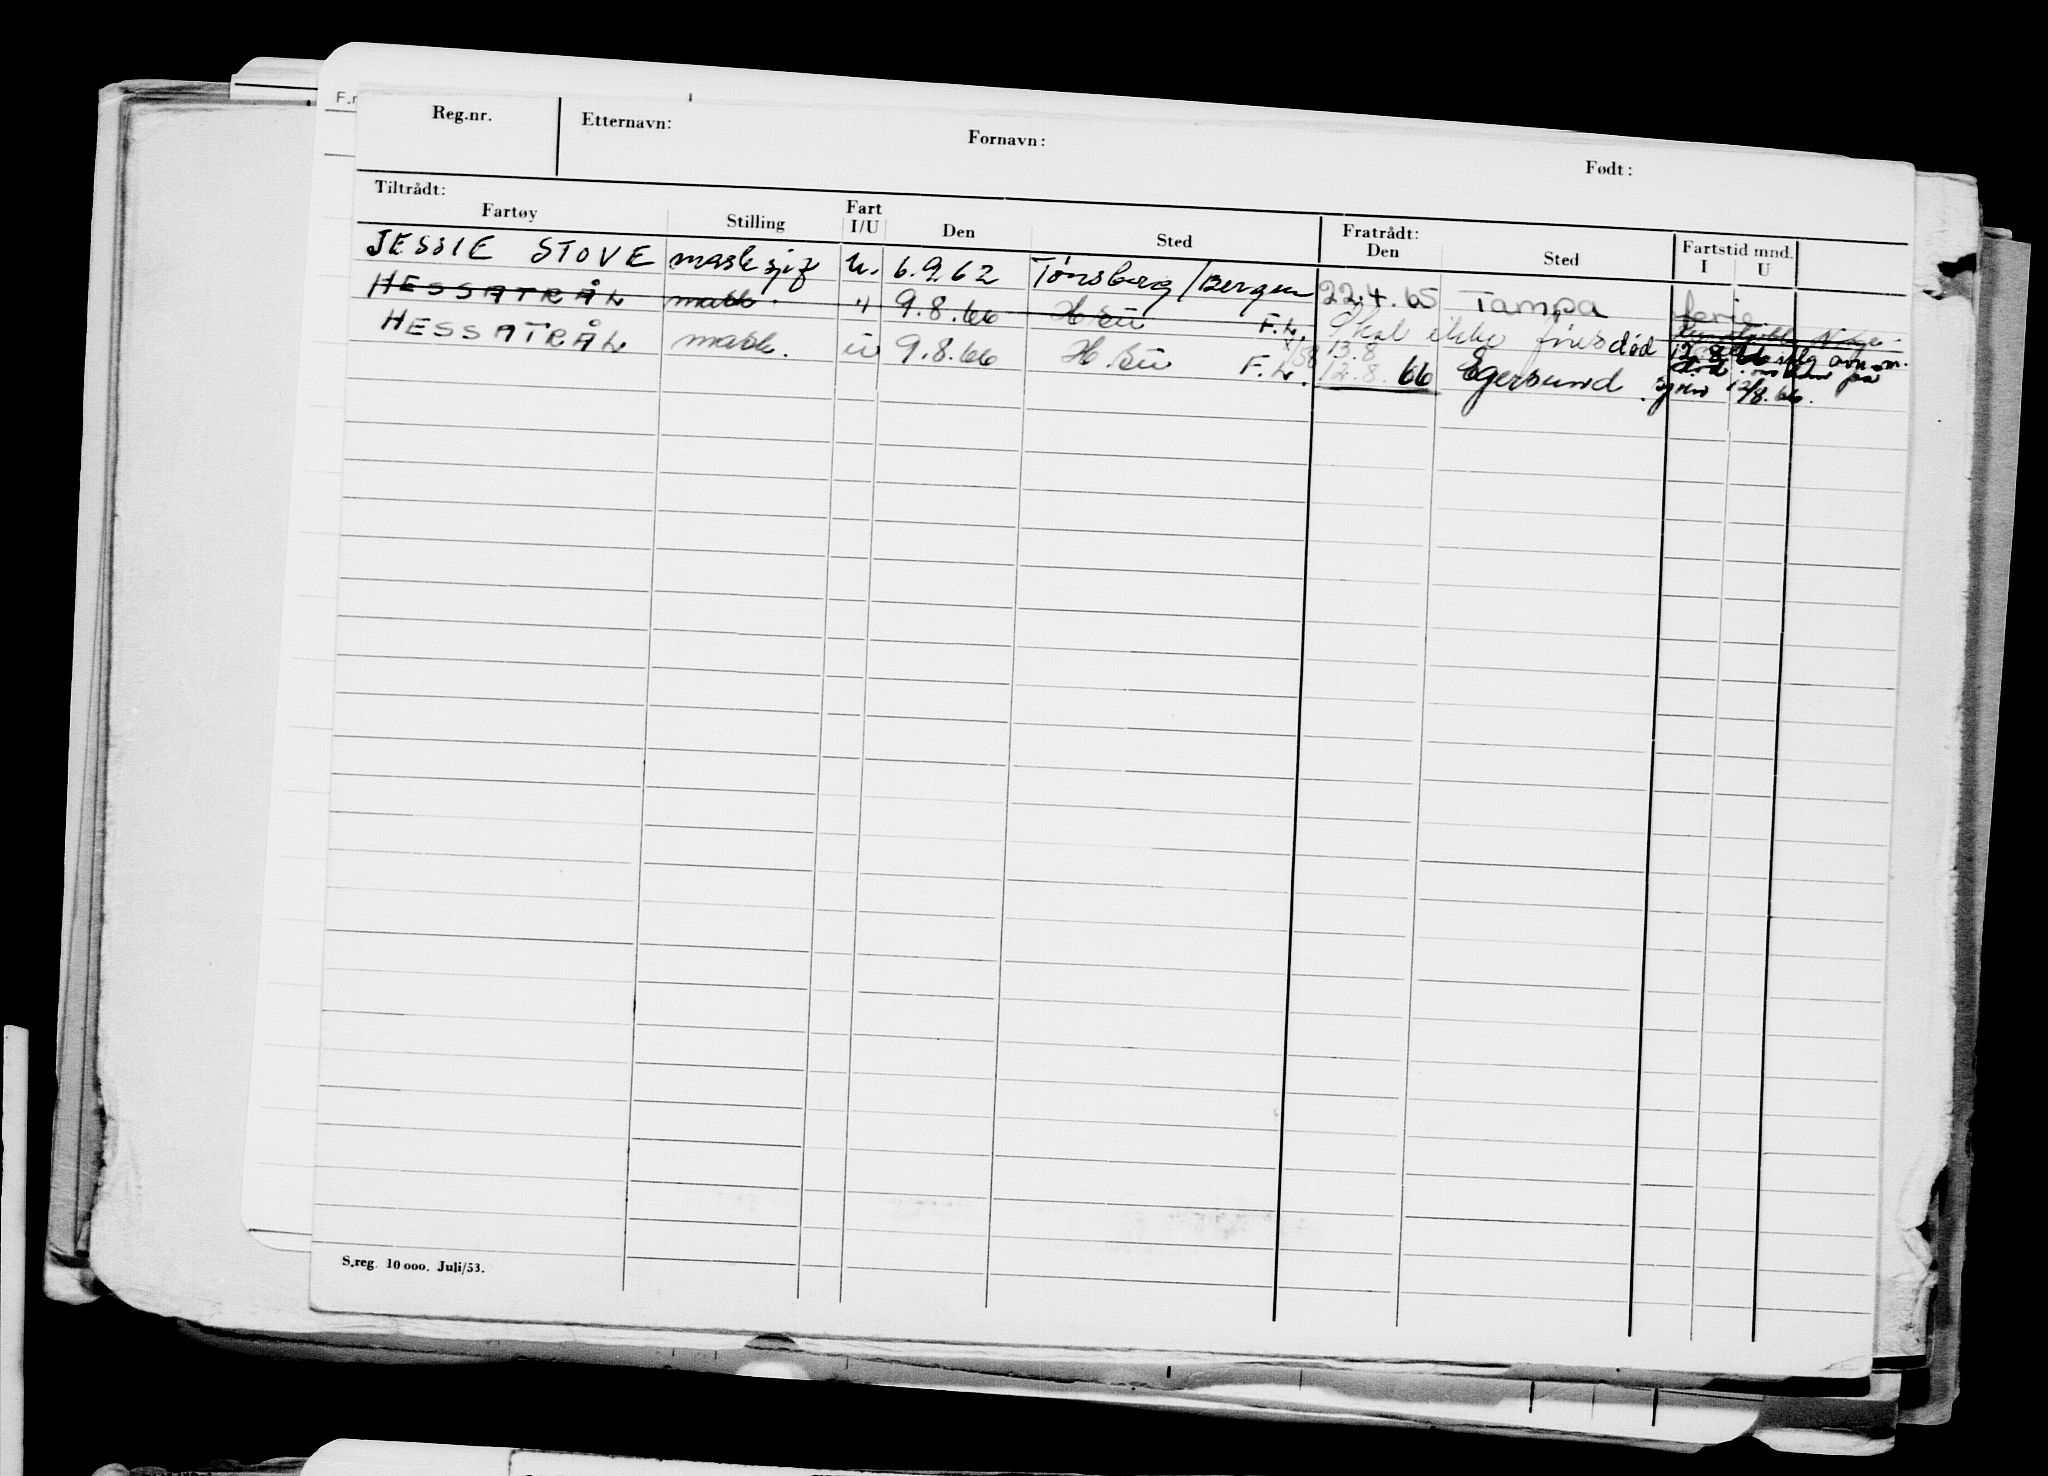 F.
Reg.nr. Etternavn: Fornavn: Født:
Tiltrådt: Fratrådt:
Fartøy Stilling Fart I/U Den Sted Den Sted Fartstid mnd. I U
JESSIE STOVE mask sjef u. 6.9.62 Tønsberg/Bergen 22.4.65 Tampa ferie
HESSATRÅL mask. " 9.8.66 F.L. Skal ikke føres død 12.8.66
HESSATRÅL mask. u 9.8.66 F.L. 13.8
12.8.66 Egersund 12/8.66.
S.reg. 10 000. Juli/53.